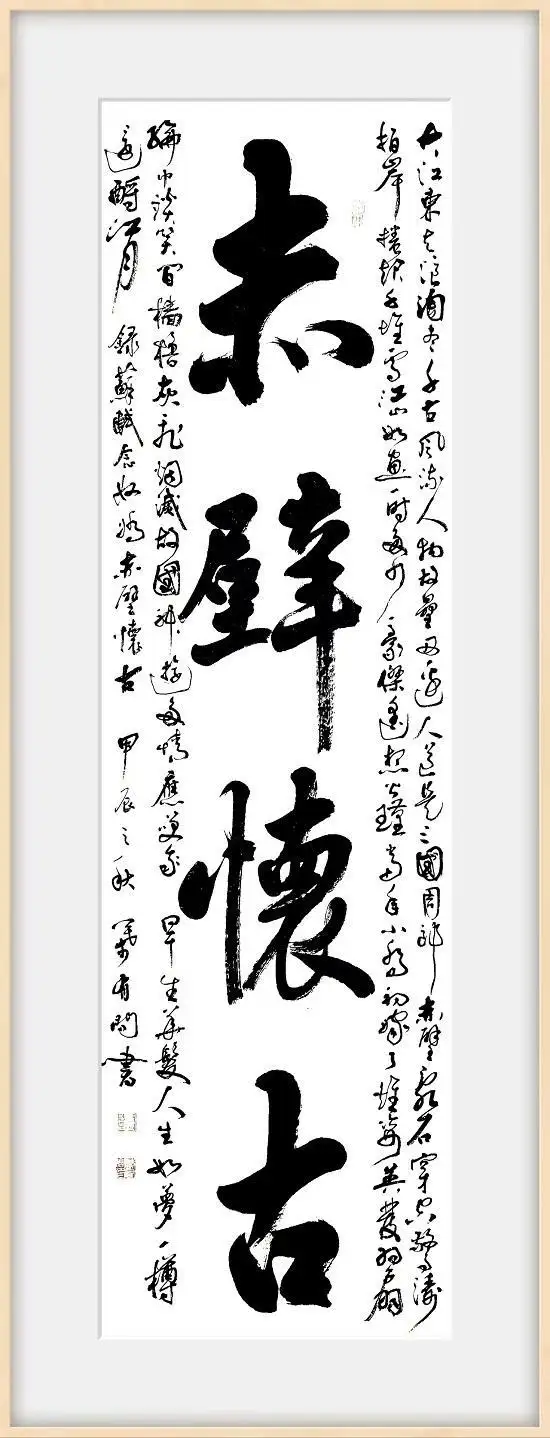 大江東去浪淘盡千古風流人物故壘西邊人道是三國周郎赤壁亂石穿空驚濤
拍岸捲起千堆雪江山如畫一時多少豪傑遙想公瑾當年小喬初嫁了雄姿英發羽扇
赤壁懷古
綸巾談笑間檣櫓灰飛烟滅故國神遊多情應笑我早生華髮人生如夢一樽
還酹江月 錄蘇軾念奴嬌赤壁懷古 甲辰之秋 有書